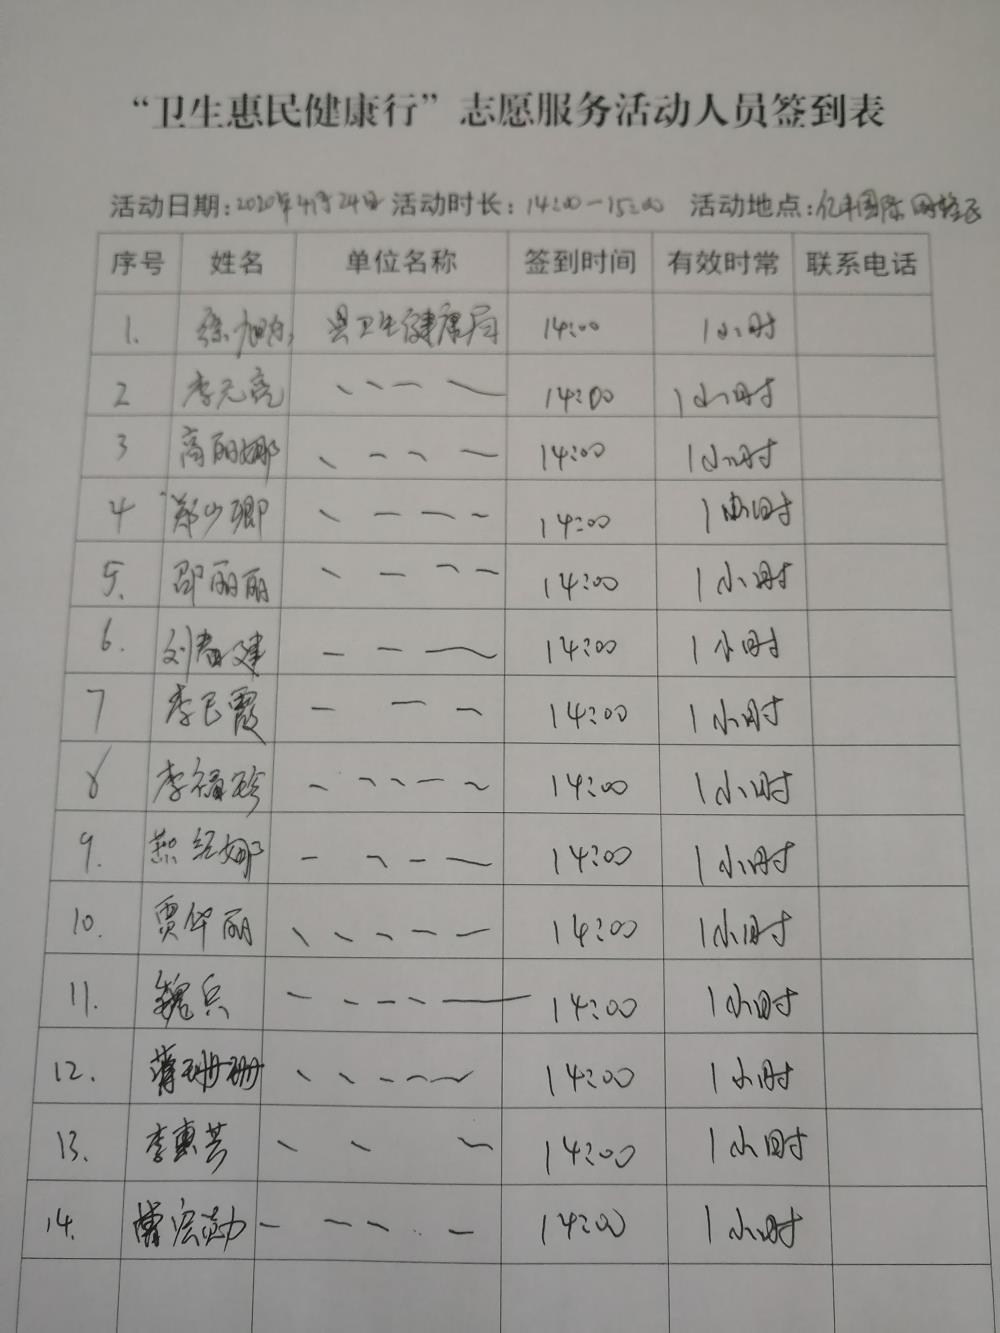 “卫生惠民健康行”志愿服务活动人员签到表
活动日期:2020年4月24日 活动时长:14:00-15:00 活动地点:亿丰国际网格区
序号 姓名 单位名称 签到时间 有效时常 联系电话
1. 县卫生健康局 14:00 1小时
2 李元亮 14:00 1小时
3 高丽娜 14:00 1小时
4 郑少卿 14:00 1小时
5. 邵丽丽 14:00 1小时
6. 刘春建 14:00 1小时
7 李巳霞 14:00 1小时
8 李福珍 14:00 1小时
9. 14:00 1小时
10. 贾华丽 14:00 1小时
11. 魏兵 14:00 1小时
12. 薄珊珊 14:00 1小时
13. 李惠芸 14:00 1小时
14. 14:00 1小时